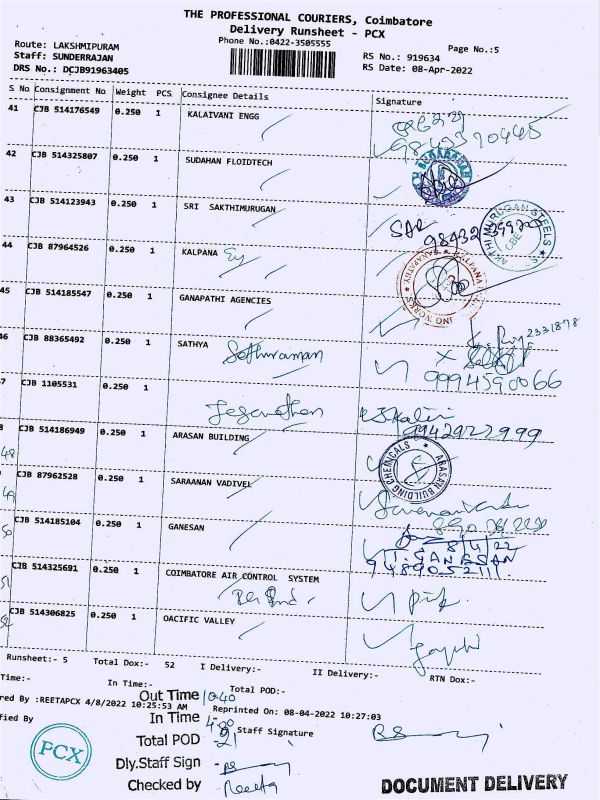 THE PROFESSIONAL COURIERS, Coimbatore
Delivery Runsheet - PCX
Phone No.:0422-3505555
Page No.:5
Route: LAKSHMIPURAM
Staff: SUNDERRAJAN
DRS No.: DCJB91963405
RS No.: 919634
RS Date: 08-Apr-2022
S No Consignment No Weight PCS Consignee Details Signature
41 CJB 514176549 0.250 1 KALAIVANI ENGG
42 CJB 514325807 0.250 1 SUDAHAN FLOIDTECH
43 CJB 514123943 0.250 1 SRI SAKTHIMURUGAN
44 CJB 87964526 0.250 1 KALPANA
45 CJB 514185547 0.250 1 GANAPATHI AGENCIES
2331878
46 CJB 88365492 0.250 1 SATHYA Sethuraman
9994590066
7 CJB 1105531 0.250 1 Jeganathan
9942927999
48 CJB 514186949 0.250 1 ARASAN BUILDING
ARASAN BUILDING CHEMICALS
49 CJB 87962528 0.250 1 SARAANAN VADIVEL
50 CJB 514185104 0.250 1 GANESAN
8/4/22
T. GANESAN
51 CJB 514325691 0.250 1 COIMBATORE AIR CONTROL SYSTEM
52 CJB 514306825 0.250 1 OACIFIC VALLEY
Runsheet:- 5 Total Dox:- 52 I Delivery:- II Delivery:- RTN Dox:-
Time:- In Time:- Total POD:-
red By :REETAPCX 4/8/2022 10:25:53 AM Reprinted On: 08-04-2022 10:27:03
Out Time 10-40
ified By
In Time
Staff Signature
Total POD - 21
Dly.Staff Sign -
Checked by Reeta
PCX
DOCUMENT DELIVERY